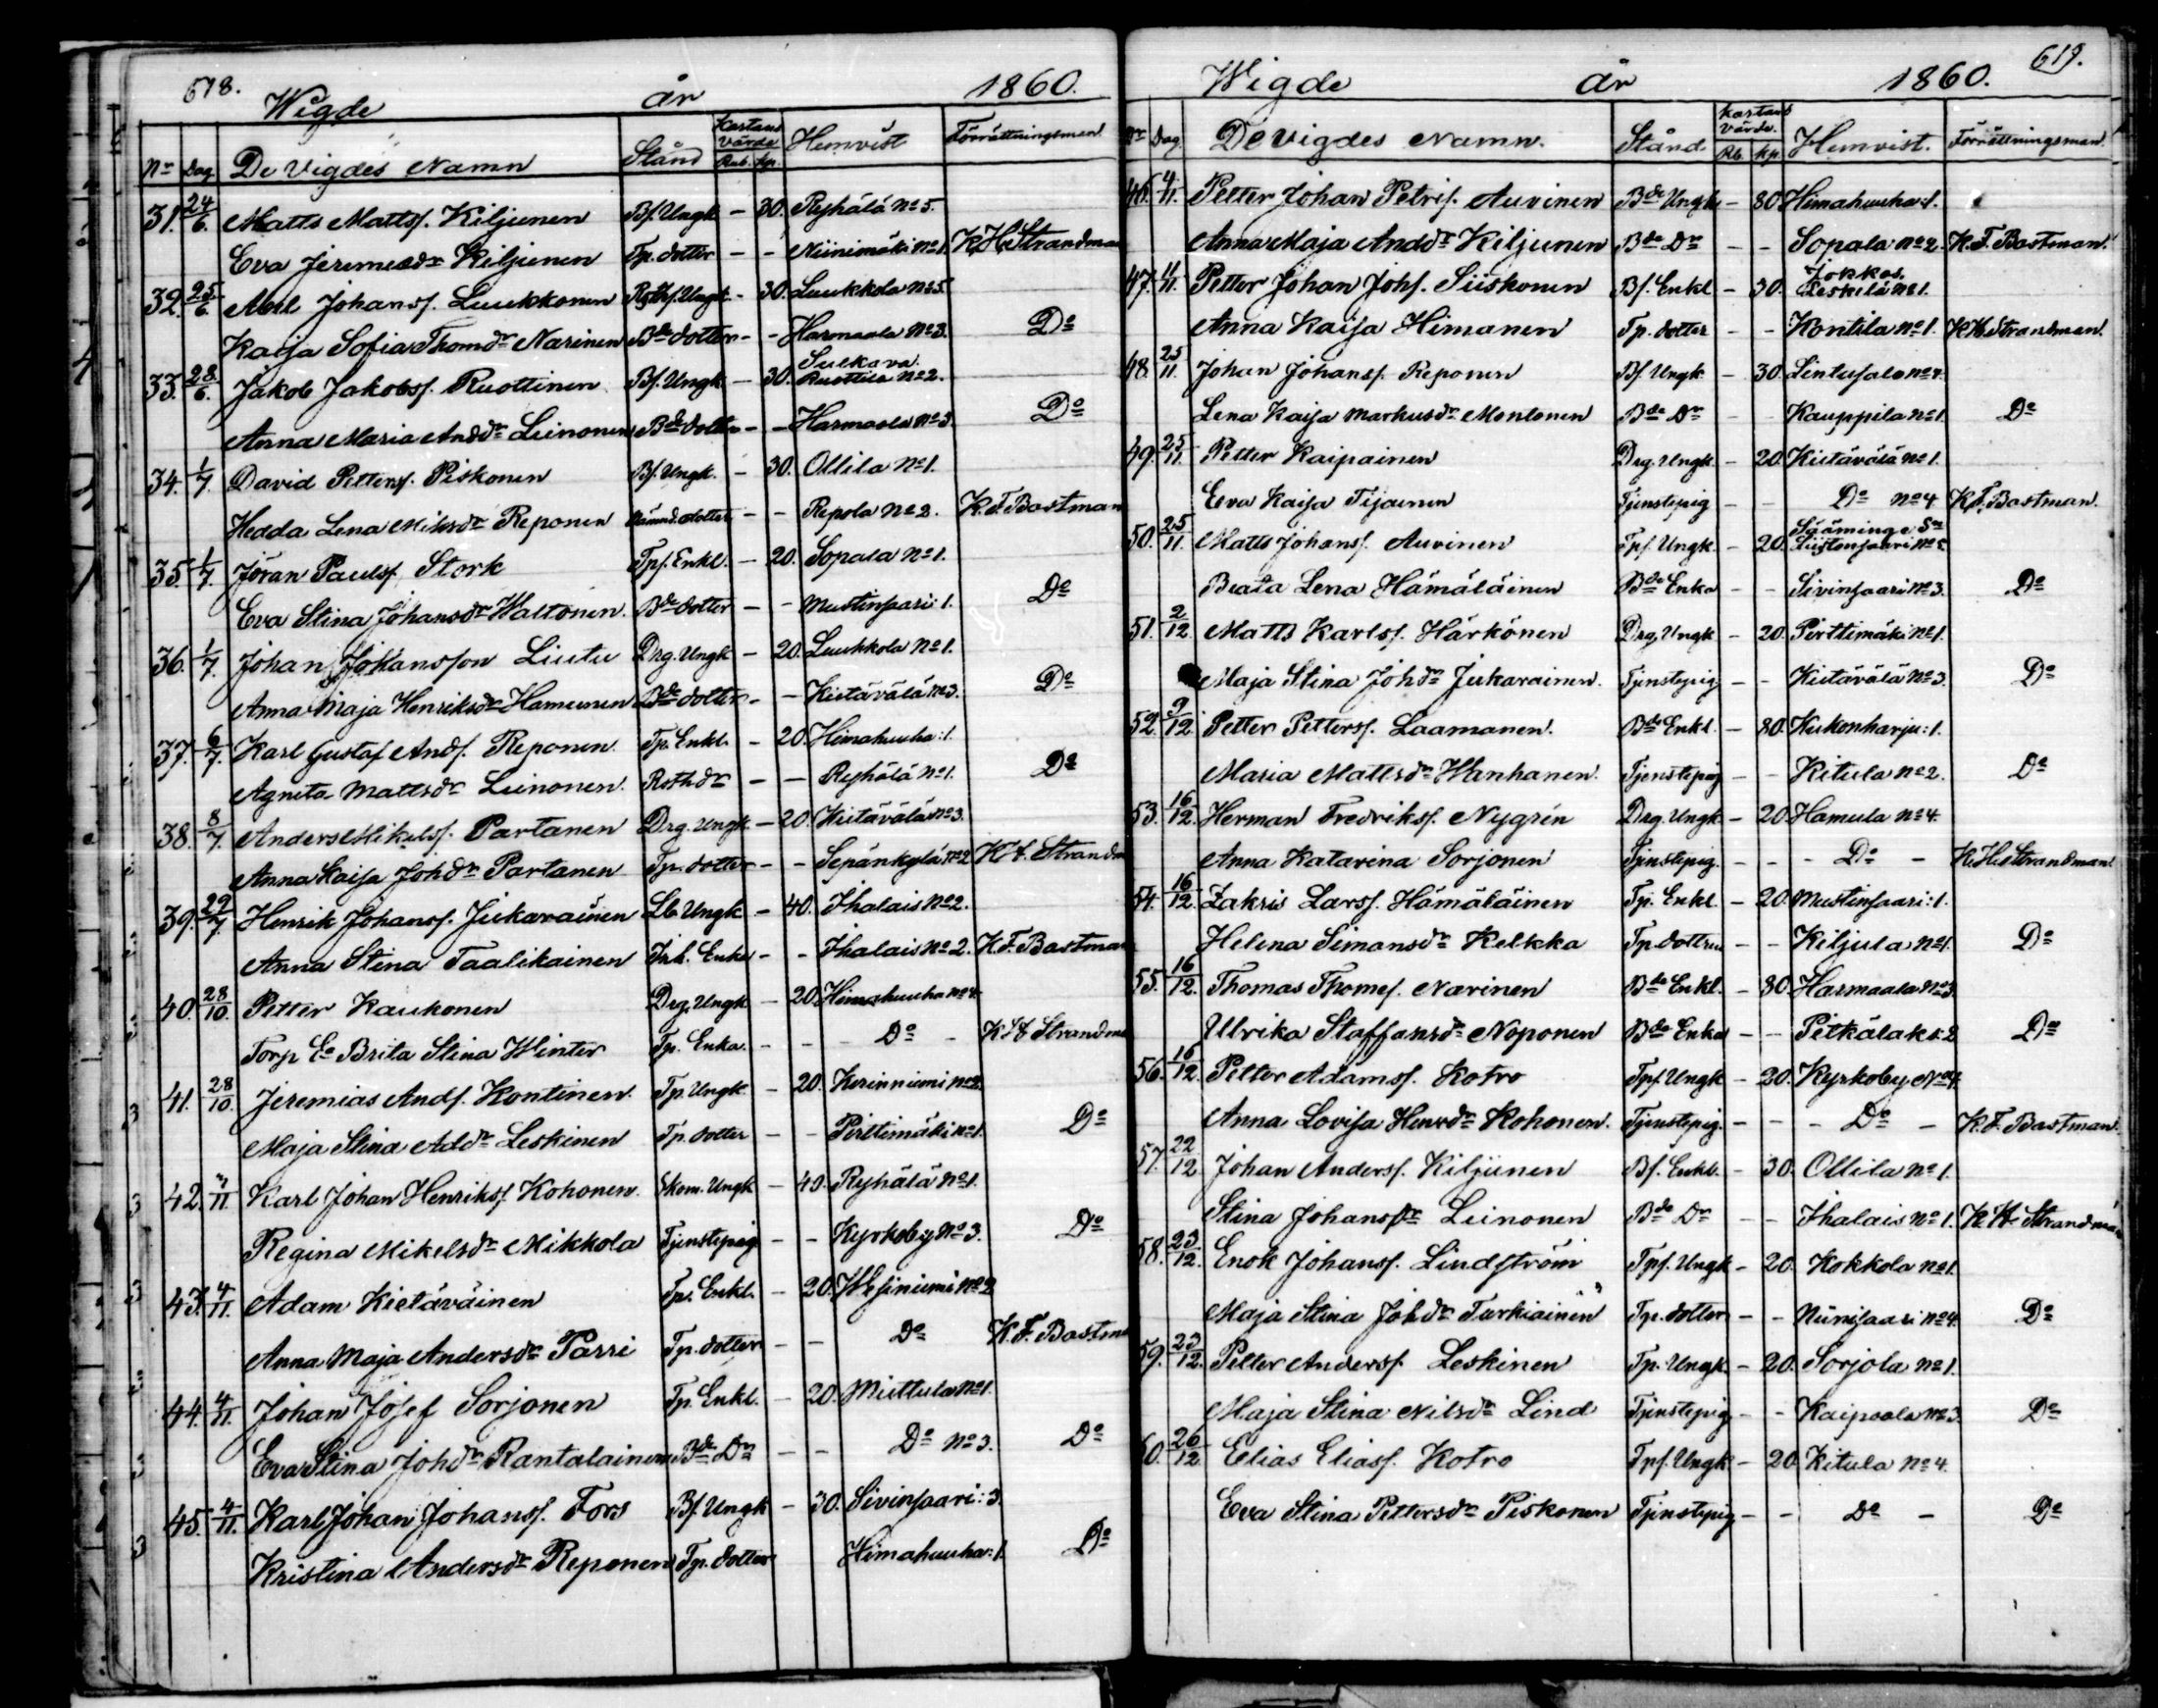 618.
Wigde år 1860.
No Dag De Vigdes Namn Stånd Kortans värde Rub. kp. Hemvist Förrättningsman
31. 24/6. Matts Mattsf. Kiljunen Bf. Ungk. – 30. Ryhälä No 5.
Eva Jeremiedr Kiljunen Tp. dotter – – Niinimäki No 1. K. H. Strandman
32. 25/6. Abel Johansf. Luukkonen Rsthf. Ungk – 30. Luukkola No 5.
Kaija Sofia Thomdr Narinen Bde dotter – – Harmaala No 3. Do
33. 28/6. Jakob Jakobsf. Ruottinen Bf. Ungk. – 30. Sulkava. Ruottila No 2.
Anna Maria Anddr Leinonen Bde dotter – – Harmaala No 3. Do
34. 1/7. David Pettersf. Piskonen Bf. Ungk. – 30. Ollila No 1.
Hedda Lena Nilsdr Reponen Nämnd. dotter – – Repola No 2. K. F. Bastman
35. 1/7. Jöran Paulsf. Stork Tpf. Enkl. – 20. Sopala No 1.
Eva Stina Johansdr Waltonen. Bde dotter – – Mustinsaari: 1. Do
36. 1/7. Johan Johansson Liutu Drg. Ungk – 20. Luukkola No 1.
Anna Maja Henriksdr Hamunen Bde dotter – – Kietävälä No 3. Do
37. 6/7. Karl Gustaf Andf. Reponen. Tp. Enkl. – 20. Himahuuha: 1.
Agneta Mattsdr Leinonen. Rsthdr – – Ryhälä No 1. Do
38. 8/7. Anders Mikelsf. Partanen Drg. Ungk – 20. Kietävälä No 3.
Anna Kaisa Johdr Partanen Tp. dotter – – Sepänkylä No 2 K. H. Strandm
39. 29/7. Henrik Johansf. Jukarainen Lb. Ungk – 40. Ihalais No 2.
Anna Stina Taalikainen Inh. Enka – – Ihalais No 2. K. F. Bastman
40. 28/10. Petter Kaukonen Drg. Ungk – 20. Himahuuha No 4.
Torp Ea Brita Stina Winter Tp. Enka. – – Do – K. H. Strandma
41. 28/10. Jeremias Andf. Kontinen. Tp. Ungk – 20. Kerinniemi No 2.
Maja Stina Addr Leskinen Tp. dotter – – Pirttimäki No 1. Do
42. 4/11. Karl Johan Henriksf. Kohonen. Skom. Ungk – 40. Ryhälä No 1.
Regina Mikelsdr Mikkola Tjenstepig – – Kyrkoby No 3. Do
43. 4/11. Adam Kietäväinen Tp. Enkl. – 20. Wesiniemi No 2
Anna Maja Andersdr Parri Tp. dotter – – Do K. F. Bastm
44. 4/11. Johan Josef Sorjonen Tp. Enkl. – 20. Miettula No 1.
Eva Stina Johdr Rantalainen Bde Dr – – Do No 3. Do
45. 4/11. Karl Johan Johansf. Fors Bf. Ungk – 30. Sivinsaari: 3.
Kristina Andersdr Reponen Tp. dotter Himahuuha: 1. Do
619.
Wigde år 1860.
No Dag. De Vigdes Namn. Stånd. Kortans värde. Rb. kp. Hemvist. Förrättningsman.
46. 4/11. Petter Johan Petrif. Auvinen Bde Ungk – 80 Himahuuha: 1.
Anna Maja Anddr Kiljunen Bde Dr – – Sopala No 2. K. F. Bastman.
47. 4/11. Petter Johan Johf. Siiskonen Bf. Enkl – 30. Jokkas. Leskelä No 1.
Anna Kaisa Himanen Tp. dotter – – Kontila No 1. K H Strandman.
48. 25/11. Johan Johansf. Reponen Bf. Ungk – 30. Lintusalo No 4.
Lena Kaisa Markusdr Montonen Bde Dr – Kauppila No 1. Do
49. 25/11. Petter Kaipainen Drg. Ungk – 20. Kietävälä No 1.
Eva Kaisa Tijainen Tjenstepig – – Do No 4 K. F. Bastman.
50. 25/11. Matts Johansf. Auvinen Tpf. Ungk. – 20. Sääminge Sn
Beata Lena Hämäläinen Bde Enka – – Sivinsaari No 3. Do
51. 2/12. Matts Karlsf. Härkönen Drg. Ungk – 20. Pirttimäki No 1.
Maja Stina Johdr Jukarainen. Tjenstepig – – Kietävälä No 3. Do
52. 9/12. Petter Pettersf. Laamanen. Bde Enkl. – 80. Kukonharju: 1.
Maria Mattsdr Wanhanen. Tjenstepig – – Kitula No 2. Do
53. 16/12. Herman Fredriksf. Nygrén Drg. Ungk – 20. Hamula No 4.
Anna Katarina Sorjonen Tjenstepig. – – – Do – K. H. Strandman.
54. 16/12. Zakris Larsf. Hämäläinen Tp. Enkl. – 20. Mustinsaari: 1.
Helena Simansdr Kelkka Tp. dotter – – Kiljula No 1. Do
55. 16/12. Thomas Thomsf. Narinen Bde Enkl. – 80. Harmaala No 3
Ulrika Staffansdr Noponen Bde Enka – – Pitkälaks: 2 Do
56. 16/12. Petter Adamsf. Kotro Tpf. Ungk – 20. Kyrkoby No 4.
Anna Lovisa Henrdr Kohonen. Tjenstepig. – – – Do – K. F. Bastman.
57. 22/12. Johan Andersf. Kiljunen Bf. Enkl. – 30. Ollila No 1.
Stina Johansdr Leinonen Bde Dr – – Ihalais No 1. K. H. Strandman
58. 23/12. Enok Johansf. Lindström Tpf. Ungk – 20. Kokkola No 1.
Maja Stina Johdr Turkiainen Tp. dotter – – Niinisaari No 4. Do
59. 23/12. Petter Andersf. Leskinen Tp. Ungk – 20. Sorjola No 1.
Maja Stina Nilsdr Lind Tjenstepig – – Kaipaala No 3. Do
60. 26/12. Elias Eliasf. Kotro Tpf. Ungk – 20. Kitula No 4.
Eva Stina Pettersdr Piskonen Tjenstepig – – Do – Do